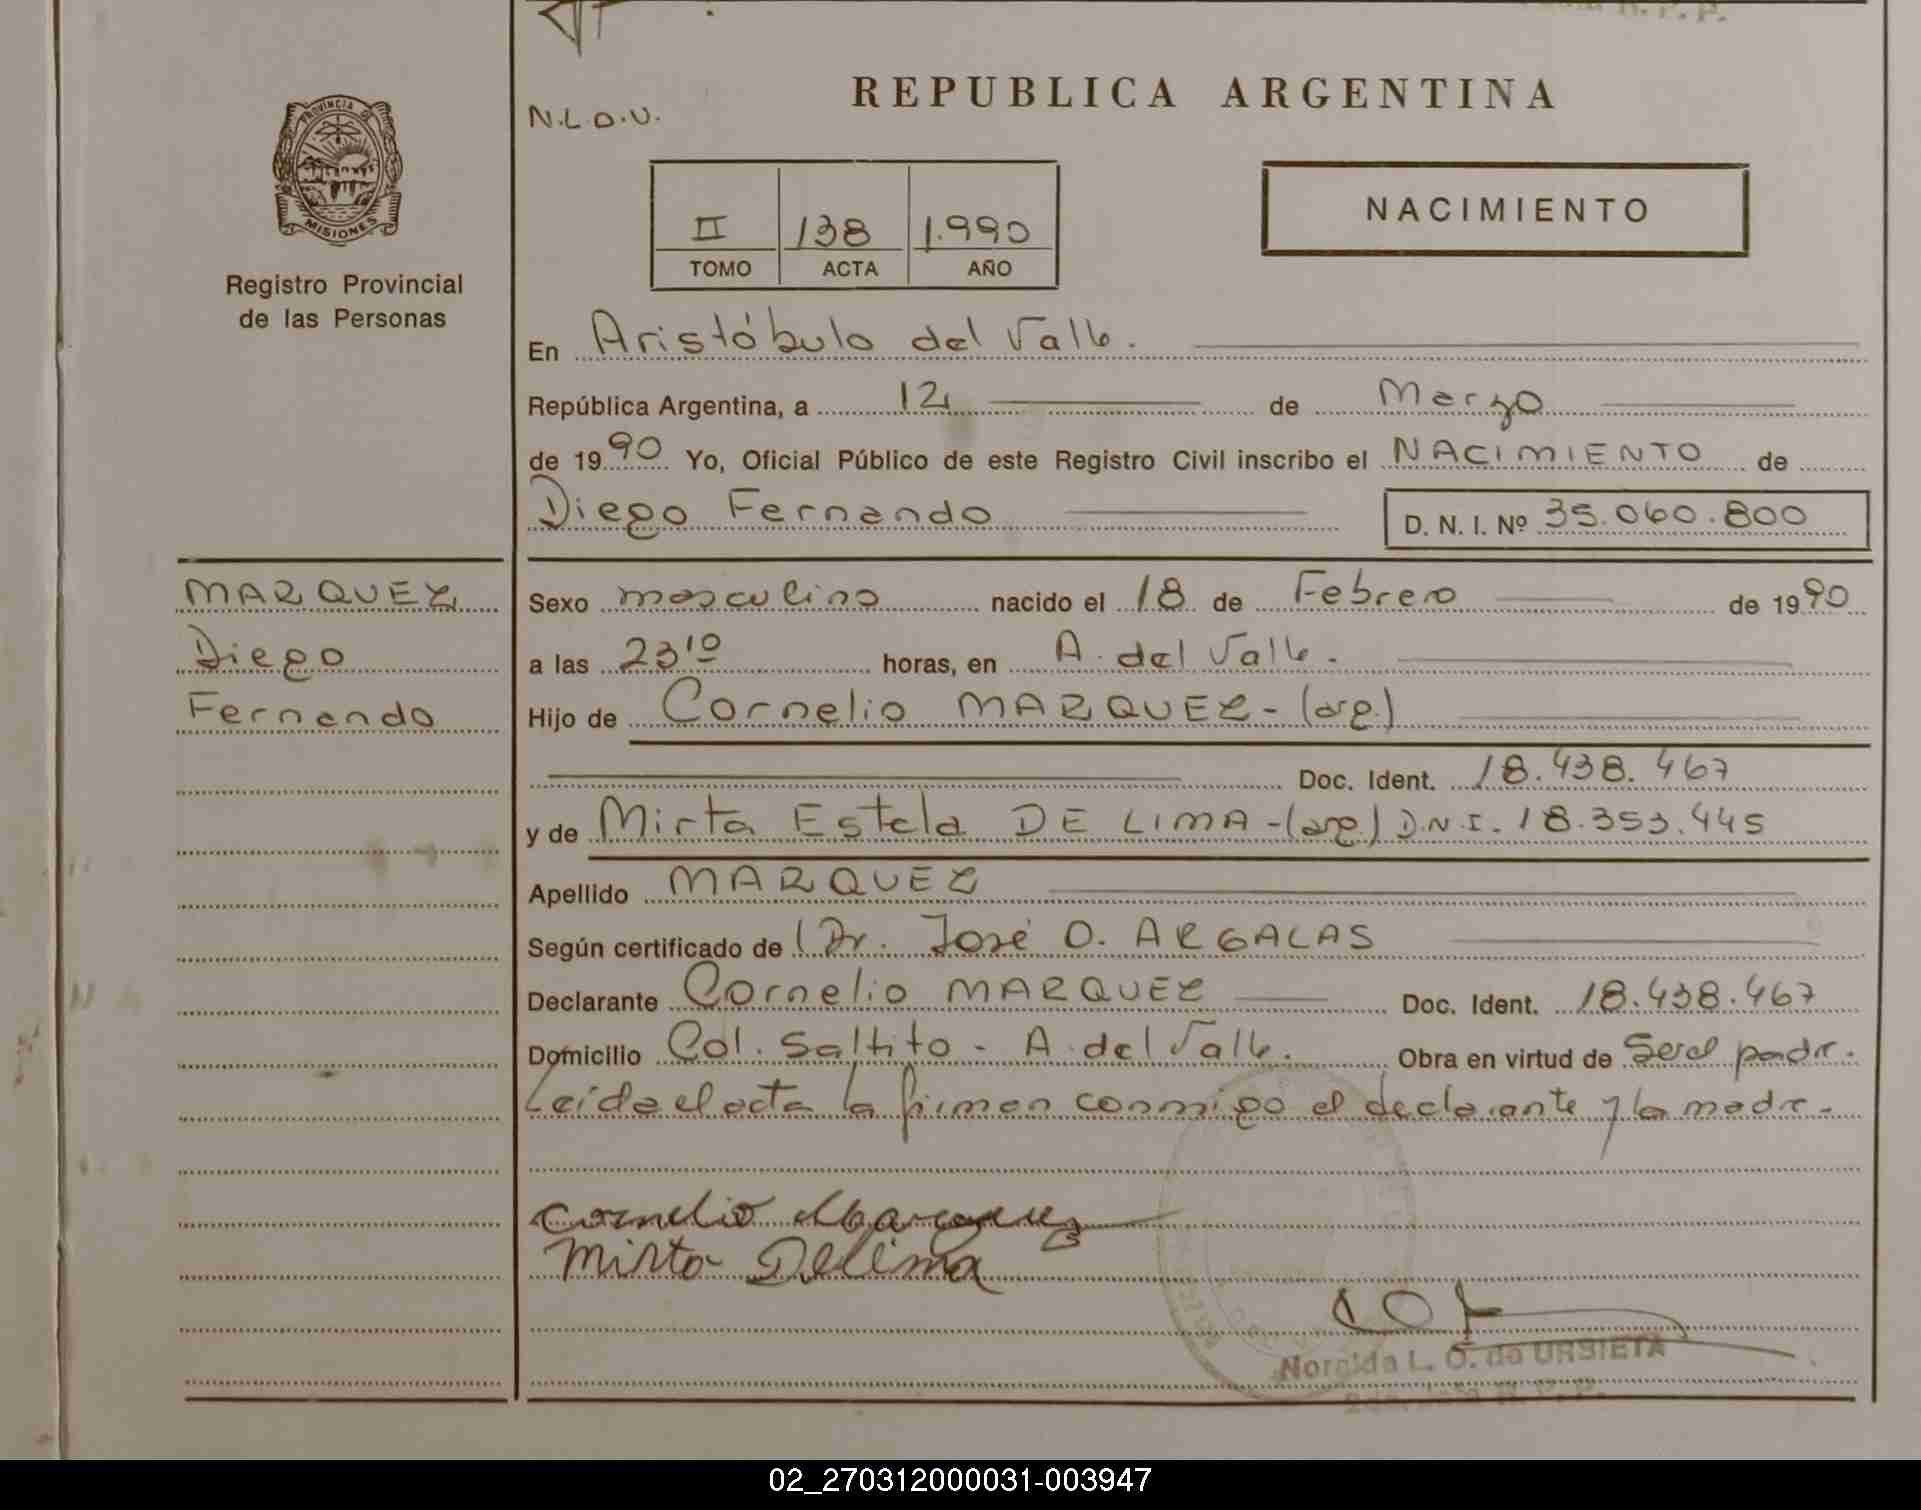 REPUBLICA ARGENTINA
N.L.D.U.
PROVINCIA DE
MISIONES
Registro Provincial
de las Personas
II 138 1.990
TOMO ACTA AÑO
NACIMIENTO
En Aristóbulo del Valle.
República Argentina, a 12 de Marzo
de 1990 Yo, Oficial Público de este Registro Civil inscribo el NACIMIENTO de
Diego Fernando D. N. I. Nº 35.060.800
MARQUEZ
Diego
Fernando
Sexo masculino nacido el 18 de Febrero de 1990
a las 23¹⁰ horas, en A. del Valle.
Hijo de Cornelio MARQUEZ - (arg.)
Doc. Ident. 18.438.467
y de Mirta Estela DE LIMA - (arg.) D.N.I. 18.353.445
Apellido MARQUEZ
Según certificado de Dr. José O. ARGALAS
Declarante Cornelio MARQUEZ Doc. Ident. 18.438.467
Domicilio Col. Saltito - A. del Valle. Obra en virtud de Ser el padre.
Leída el acta la firman conmigo el declarante y la madre.
Cornelio Marquez
Mirta Delima
L. O. de URBIETA
R. P. P.
02_270312000031-003947